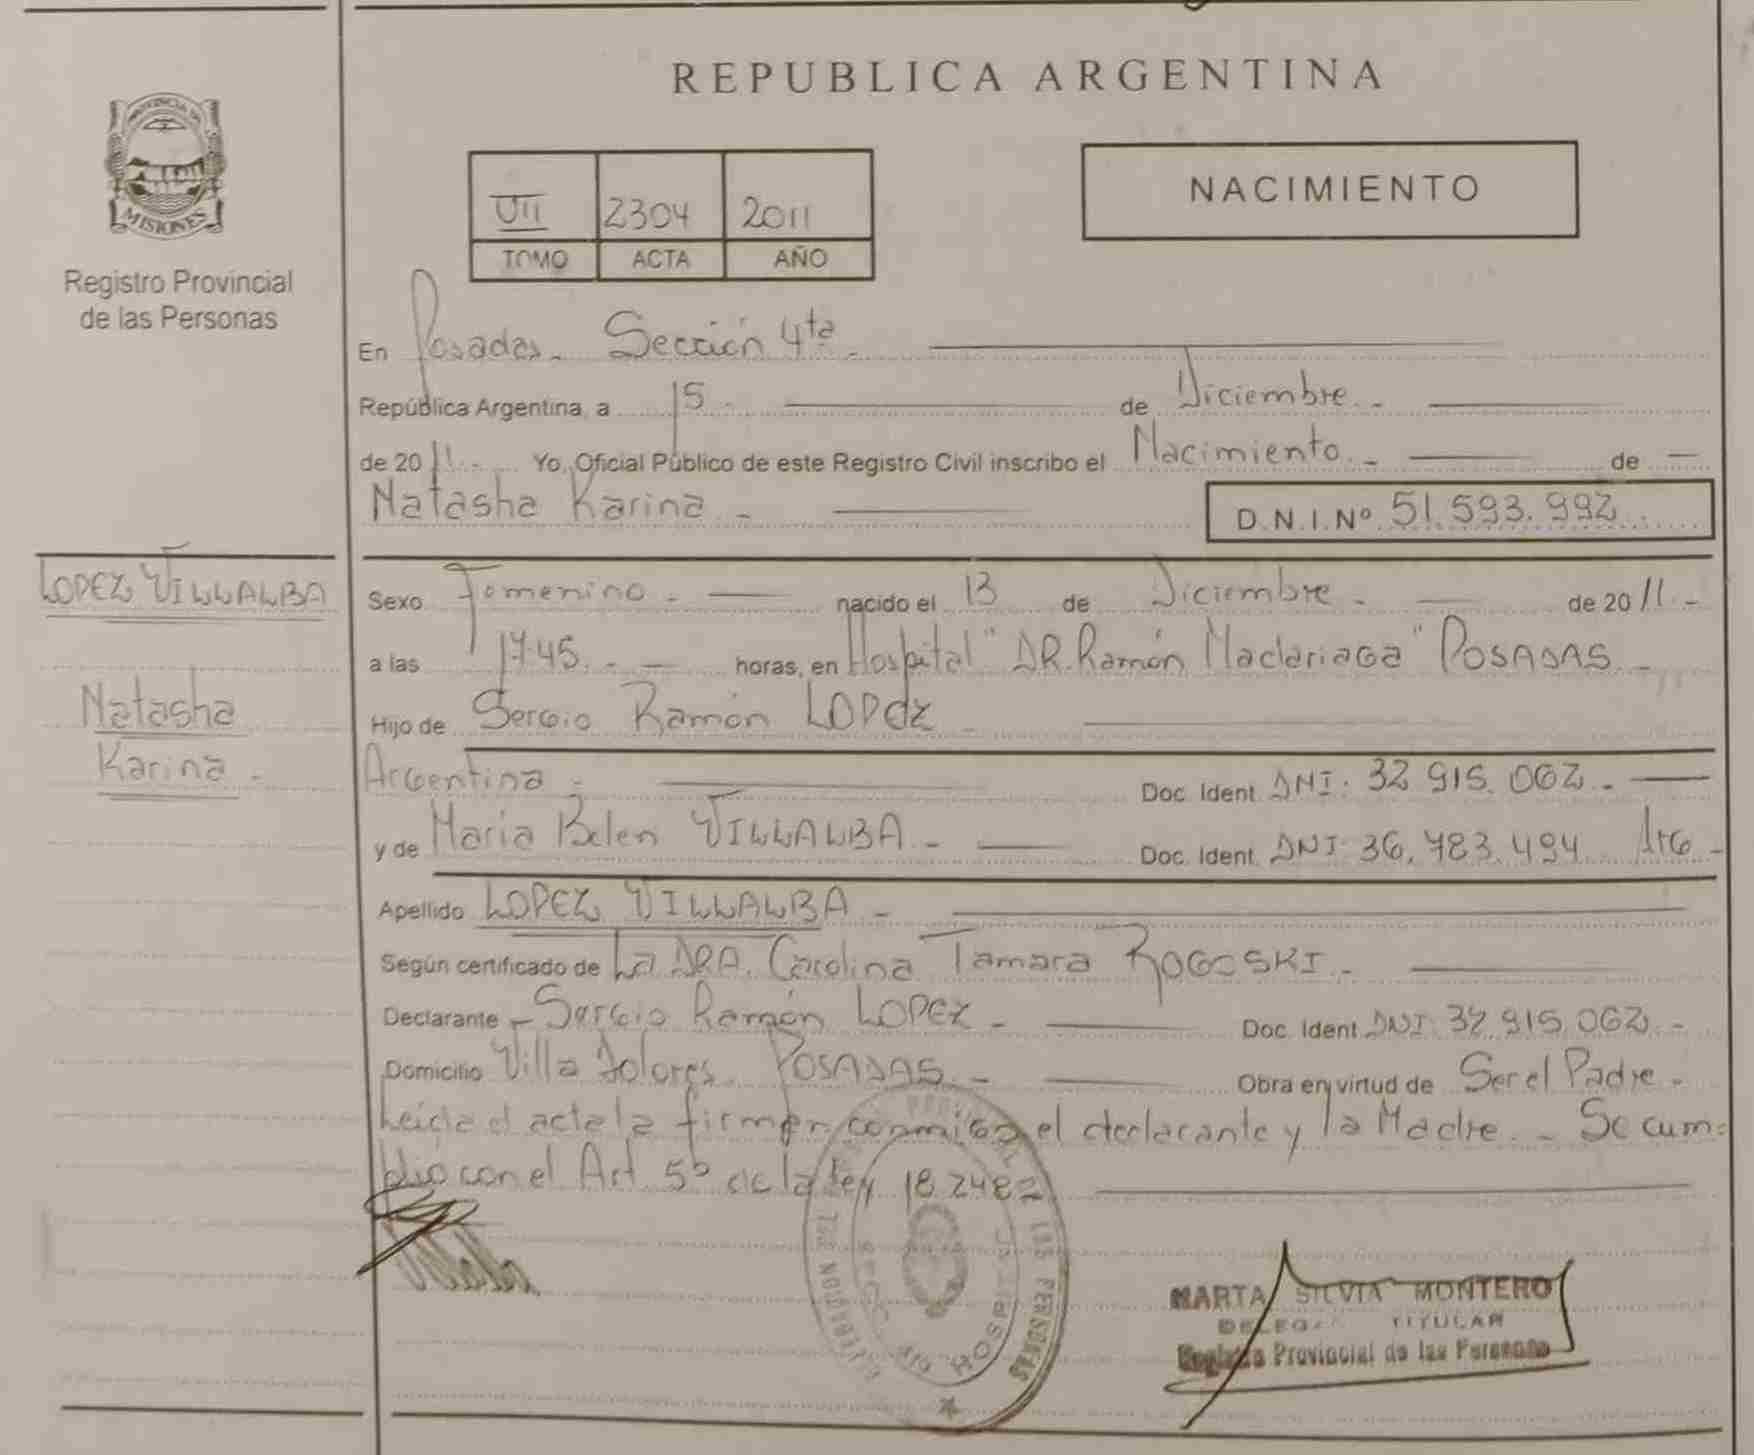 REPUBLICA ARGENTINA
PROVINCIA DE
MISIONES
Registro Provincial
de las Personas
VII 2304 2011
TOMO ACTA AÑO
NACIMIENTO
En Posadas. Sección 4ta.
República Argentina, a 15. de Diciembre.
de 2011. Yo, Oficial Público de este Registro Civil inscribo el Nacimiento. de
Natasha Karina D.N.I.Nº 51.593.992
LOPEZ VILLALBA
Natasha
Karina
Sexo Femenino. nacido el 13 de Diciembre. de 2011.
a las 17.45. horas, en Hospital "DR. Ramón Madariaga" POSADAS
Hijo de Sergio Ramón LOPEZ
Argentina Doc. Ident. DNI: 32.915.062.
y de Maria Belen VILLALBA. Doc. Ident. DNI: 36.483.494 Arg
Apellido LOPEZ VILLALBA
Según certificado de La DRA. Carolina Tamara ROGOSKI.
Declarante Sergio Ramón LOPEZ Doc. Ident. DNI: 32.915.062.
Domicilio Villa Dolores. POSADAS Obra en virtud de Ser el Padre.
Leida el acta la firman conmigo el declarante y la Madre. Se cum=
plio con el Art 5º de la ley 18.248
MARTA SILVIA MONTERO
TITULAR
Registro Provincial de las Personas